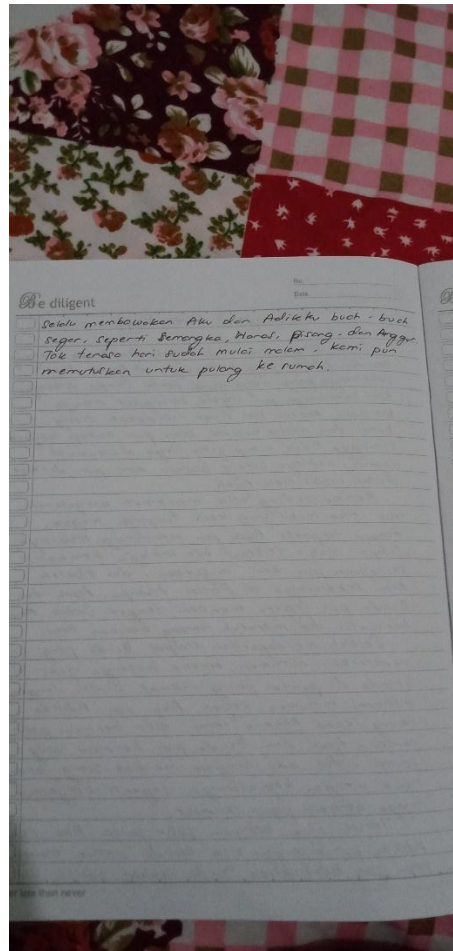 No.
Date
Be diligent
Selalu membawakan Aku dan Adikku buah - buah
segar, seperti Semangka, Nanas, Pisang, dan Anggur.
Tak terasa hari sudah mulai malam, kami pun
memutuskan untuk pulang ke rumah.
late than never